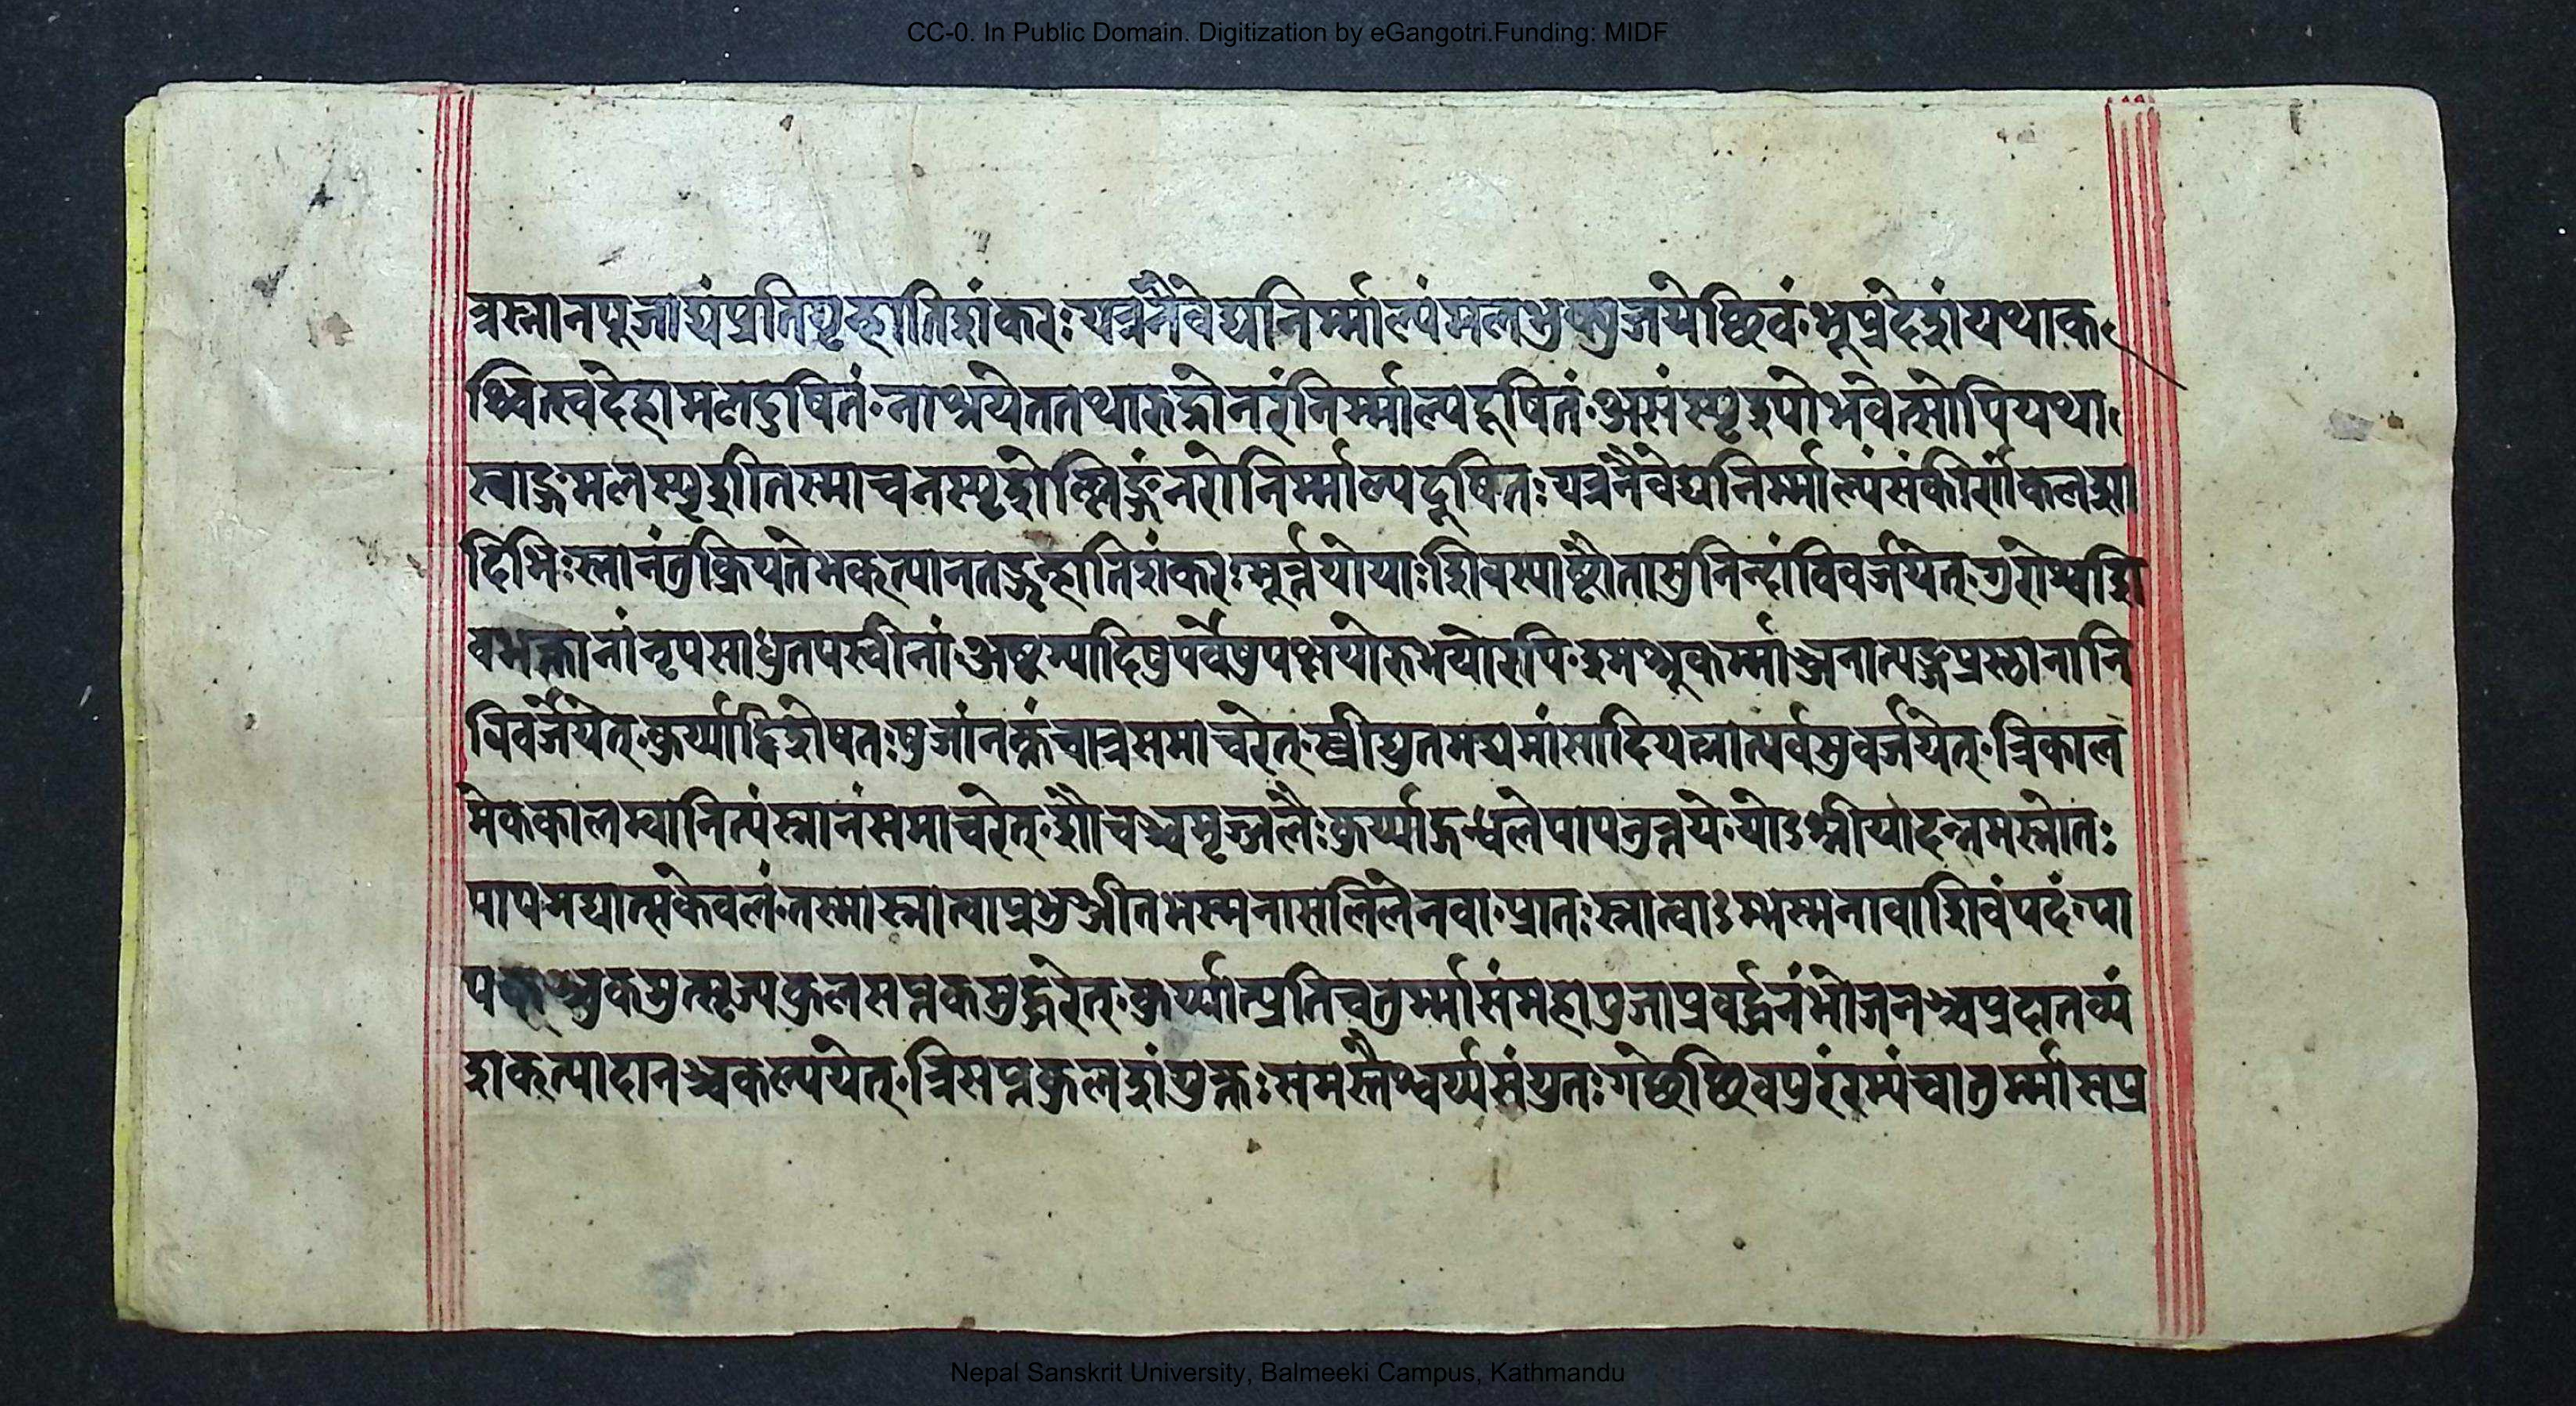 CC-0. In Public Domain. Digitization by eGangotri.Funding: MIDF
त्रस्नानपूजाद्यंप्रतिगृह्णातिशंकरः यत्रनैवेद्यनिर्म्माल्यंमलभुक्पूजयेच्छिवं॰भूप्रदेशंयथाक
श्चित्स्वदेहामलदुषितं॰नाश्रयेततथारुद्रोनरंनिर्म्माल्यदूषितं॰असंस्पृश्योभवेत्सोपियथा
स्वाङ्गमलस्पृशीतस्माचनस्पृशेल्लिङ्गंनरोनिर्म्माल्यदूषितः यत्रनैवेद्यनिर्म्माल्यंसंकीर्णंकलशा
दिभिः स्नानंतुक्रियतेभक्त्यानतद्गृह्णातिशंकरः मूर्त्तयोयाः शिवस्याष्टौतासुनिन्दांविवर्जयेत्॰गुरोश्चशि
वभक्तानांनृपसाधुतपस्वीनां॰अष्टम्यादिषुपर्वेषुपक्षयोरुभयोरपि॰श्मश्रुकर्म्माञ्जनात्यङ्गप्रस्थानानि
विवर्जयेत्॰कुर्य्याद्विशेषतः पुजांनक्तंचात्रसमाचरेत्॰स्त्रीद्युतमद्यमांसादियत्नात्पर्वसुवर्जयेत्॰त्रिकाल
मेककालम्वानित्यंस्नानंसमाचरेत्॰शौचञ्चमृज्जलैः कुर्य्याद्गन्धलेपापनुत्तये॰योऽश्नीयादन्नमस्नातः
पापमद्यात्सकेवलं॰तस्मास्नात्वाप्रभुञ्जीतभस्मनासलिलेनवा॰प्रातः स्नात्वाऽम्भस्मनावाशिवंपदं॰पा
पकञ्चुकमुत्सृज्यकुलसप्तकमुद्धरेत्॰कुर्य्यात्प्रतिचतुर्म्मासंमहापुजाप्रवर्द्धनंभोजनञ्चप्रदातव्यं
शक्त्यादानञ्चकल्पयेत्॰त्रिसप्तकुलशंयुक्तः समस्तैश्वर्य्यसंयुतः गच्छेच्छिवपुरंरम्यंचातुर्म्मासप्र
Nepal Sanskrit University, Balmeeki Campus, Kathmandu